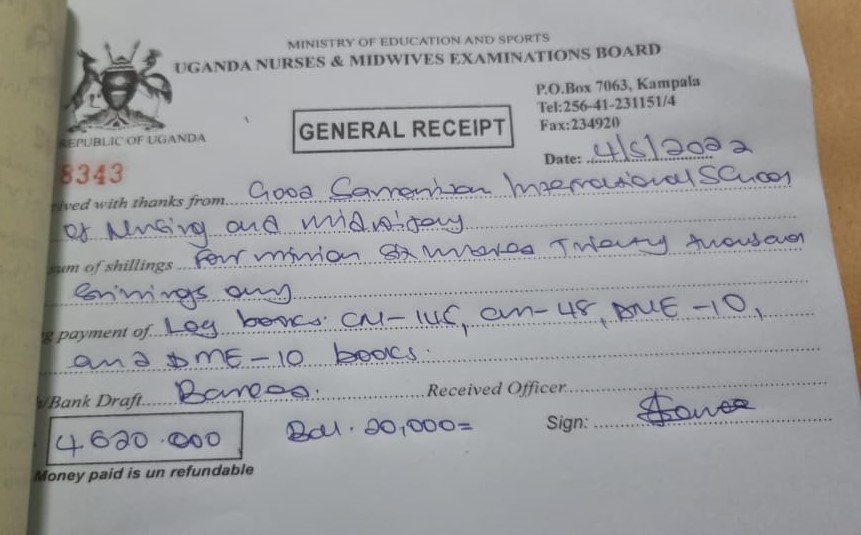 MINISTRY OF EDUCATION AND SPORTS
UGANDA NURSES & MIDWIVES EXAMINATIONS BOARD
P.O.Box 7063, Kampala
Tel:256-41-231151/4
Fax:234920
REPUBLIC OF UGANDA
GENERAL RECEIPT
Date: 4/5/2022
8343
ived with thanks from Good Samaritan International School
of Nursing and midwifery
sum of shillings Four million six hundred Twenty thousand
shillings only
g payment of Log books. CN-146, CM-48, DNE-10,
and DME-10 books.
/Bank Draft Received Officer
4620.000 Bal. 20,000= Sign:
Money paid is un refundable